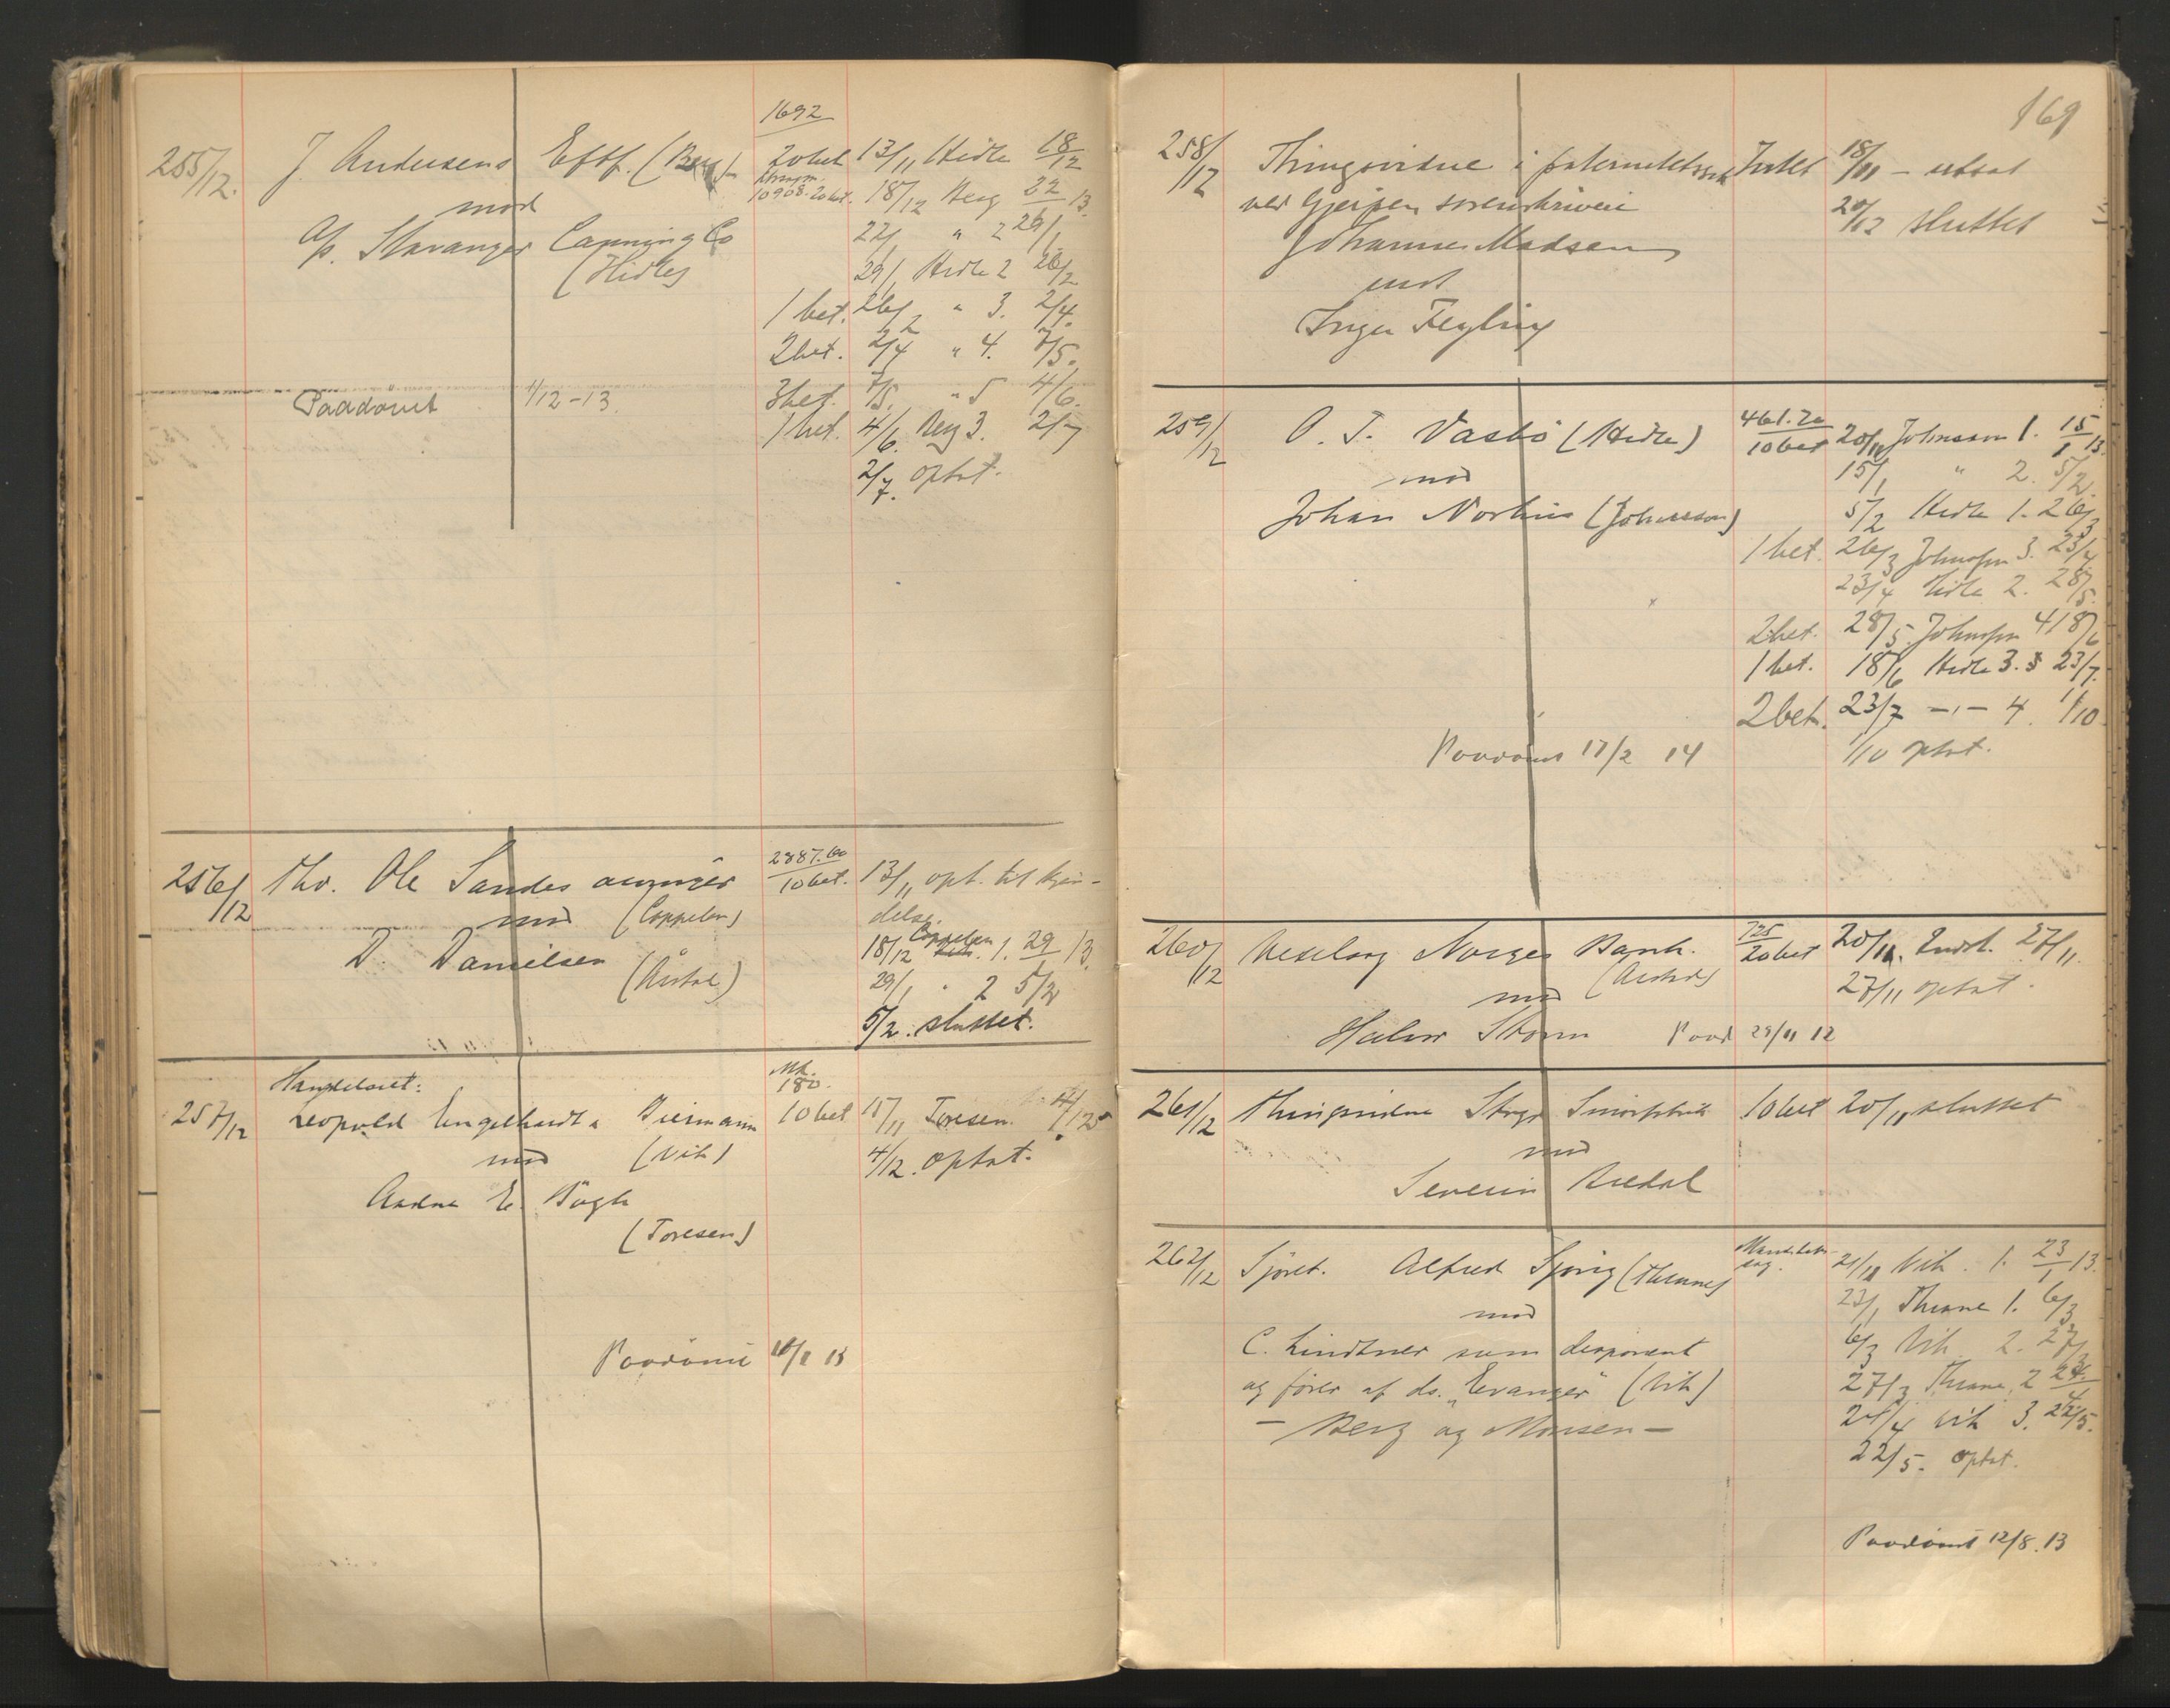 1692
255/12. J. Andersens Eftf. (Berg) 20 bet. 13/11 Hidle 18/12
mod 10908. 20 bet. 18/12 Berg 22/1 13.
A/S. Stavanger Canning Co 22/1 " 2 29/1
(Hidle) 29/1 Hidle 2 26/2
1 bet. 26/2 " 3. 2/4.
2 bet. 2/4 " 4. 7/5.
Paadømt 1/12-13. 3 bet. 7/5. " 5 4/6.
1 bet. 4/6. Berg 3. 2/7
2/7. optat.
256/12 Thv. Ole Sandes 2887.60 10 bet. 13/11 opt. til kjen-
mod (Coppelen) delse.
D. Danielsen 18/12 Coppelen 1. 29/1 13.
(Årstal) 29/1 " 2 5/2
5/2. sluttet.
Handelsret: Mk. 180.
257/12 Leopold Engelhardt & Biermann 10 bet 15/11 Toresen 4/12
mod (Vik) 4/12. optat.
Andr. E. Bøgh
(Toresen)
Paadømt
169
258/12 Thingsvidne i paternitetssak 18/11 - utsat
ved Gjerpen sorenskriveri 20/12 sluttet
Johannes Madsen
mot
Inga Fegling
259/12 O. T. Vasbø (Hidle) 461.70 10 bet 20/11 Johnsson 1. 15/1 13.
mod 15/1 " 2. 5/2.
Johan Norhus (Johnsson) 5/2 Hidle 1. 26/3
1 bet. 26/3 Johnsson 3. 23/4.
23/4 Hidle 2. 28/5.
2 bet. 28/5. Johnsson 4 18/6
1 bet. 18/6 Hidle 3. 23/7.
2 bet. 23/7 -"- 4. 1/10
Paadømt 17/2 14 1/10 optat.
260/12 Vexelsag Norges Bank. 725 20 bet 20/11. Indst. 27/11.
mod 27/11 optat.
Halvor Storm Paad 29/11 12
261/12 Thingsvidne 10 bet 20/11 sluttet
mod
Severin Bredal
262/12 Sjøret. Alfred (Thrane) 21/11 Vik. 1. 23/1 13.
mod 23/1 Thrane 1. 6/3
C. Lindtner som disponent 6/3 Vik 2. 27/3
og fører af ds. "Evanger" (Vik) 27/3 Thrane 2 24/4
- Berg og Monsen - 24/4 Vik 3. 22/5.
22/5. optat.
Paadømt 12/8. 13